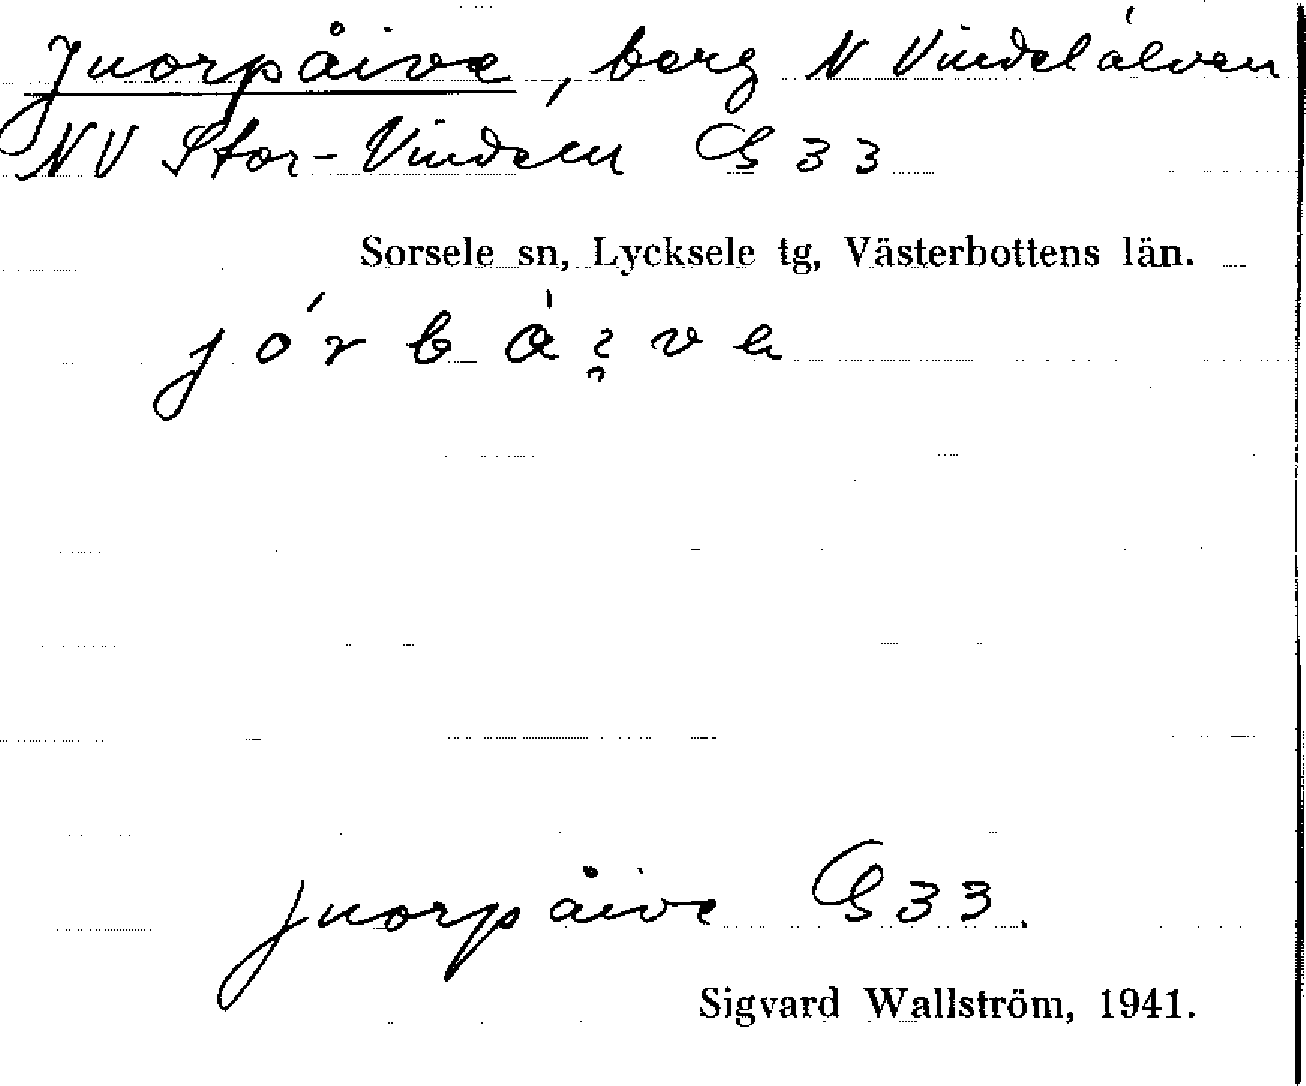 Juorpåive, berg N Vindelälven
NV Stor-Vindeln G 33
Sorsele sn, Lycksele tg, Västerbottens län.
juorpåive G 33.
Sigvard Wallström, 1941.